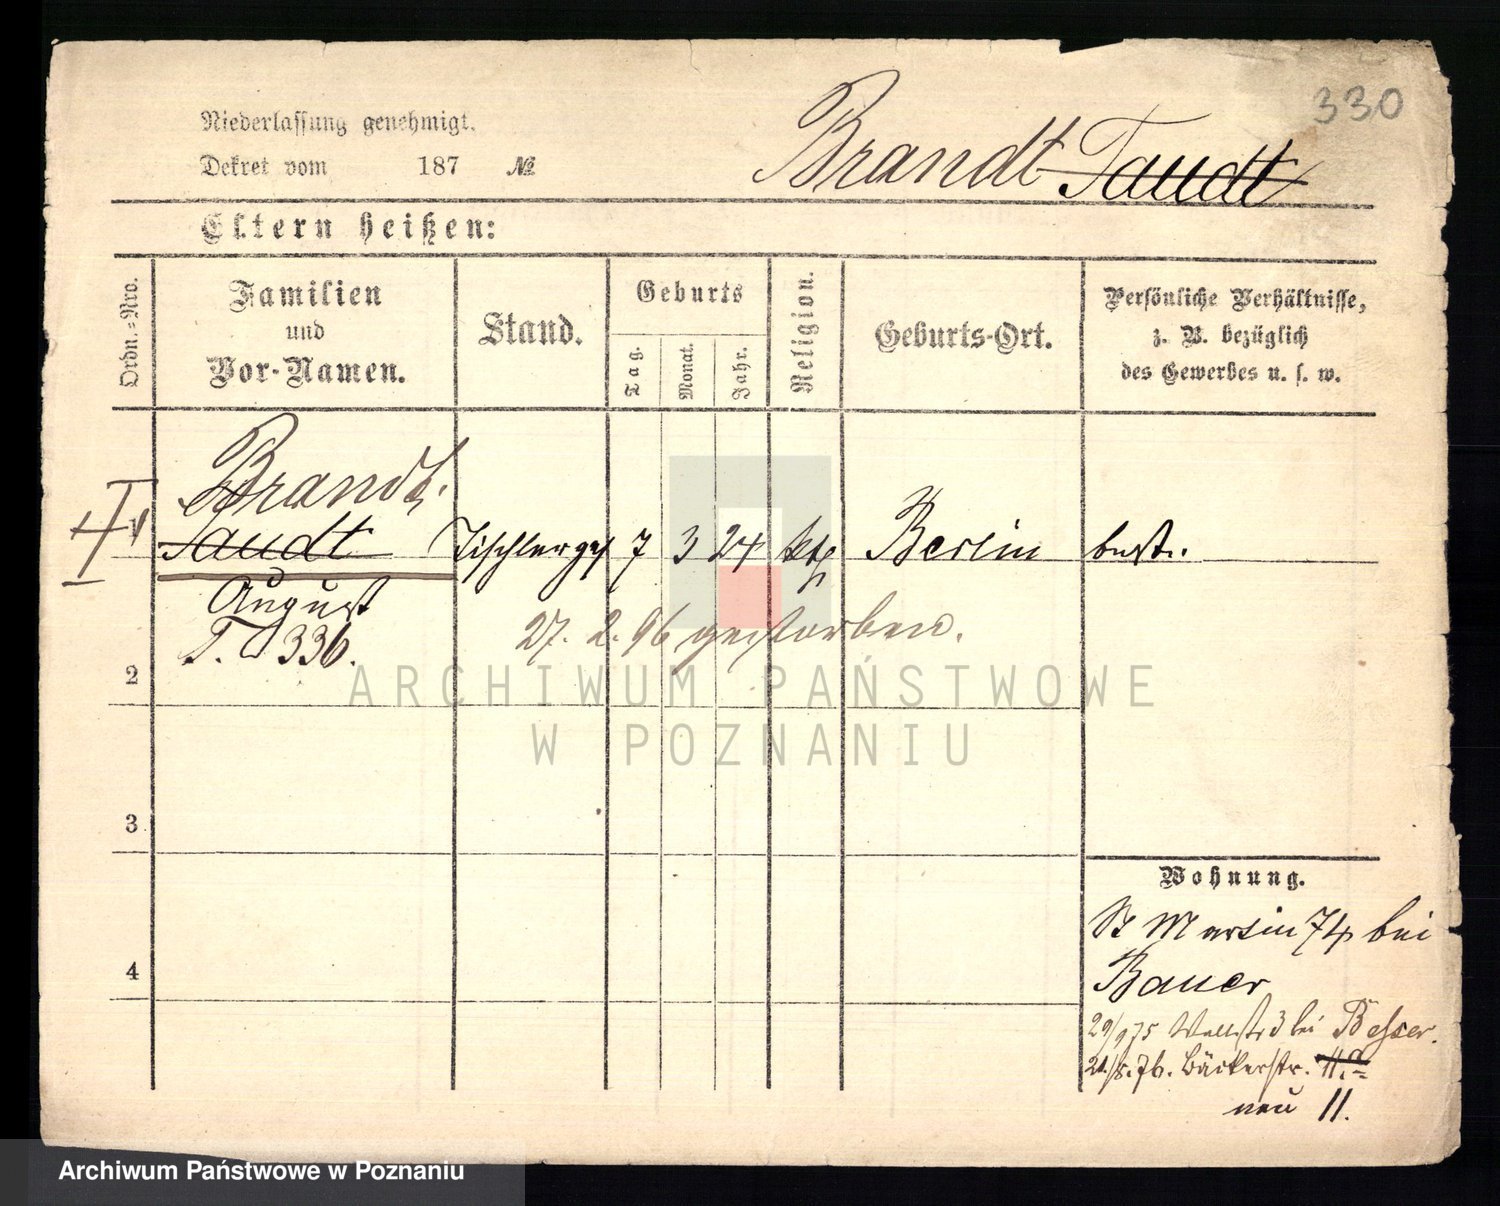 330
Niederlassung genehmigt.
Dekret vom 187 №
Brandt Taudt
Eltern heißen:
Ordn.=Nro.
Familien
und
Vor-Namen.
Stand.
Geburts
Tag.
Monat.
Jahr.
Religion.
Geburts-Ort.
Persönliche Verhältnisse,
z. B. bezüglich
des Gewerbes u. s. w.
Brandt.
Taudt Tischlerges 7 3 24 kth Berlin best.
August
T. 336.
27. 2. 96 gestorben.
2
3
4
Wohnung.
St Martin 74 bei
Bauer
29/9 75 Wallstr 3 bei Besser.
21/8. 76. Bäckerstr. 11.a
neu 11.
ARCHIWUM PAŃSTWOWE
W POZNANIU
Archiwum Państwowe w Poznaniu